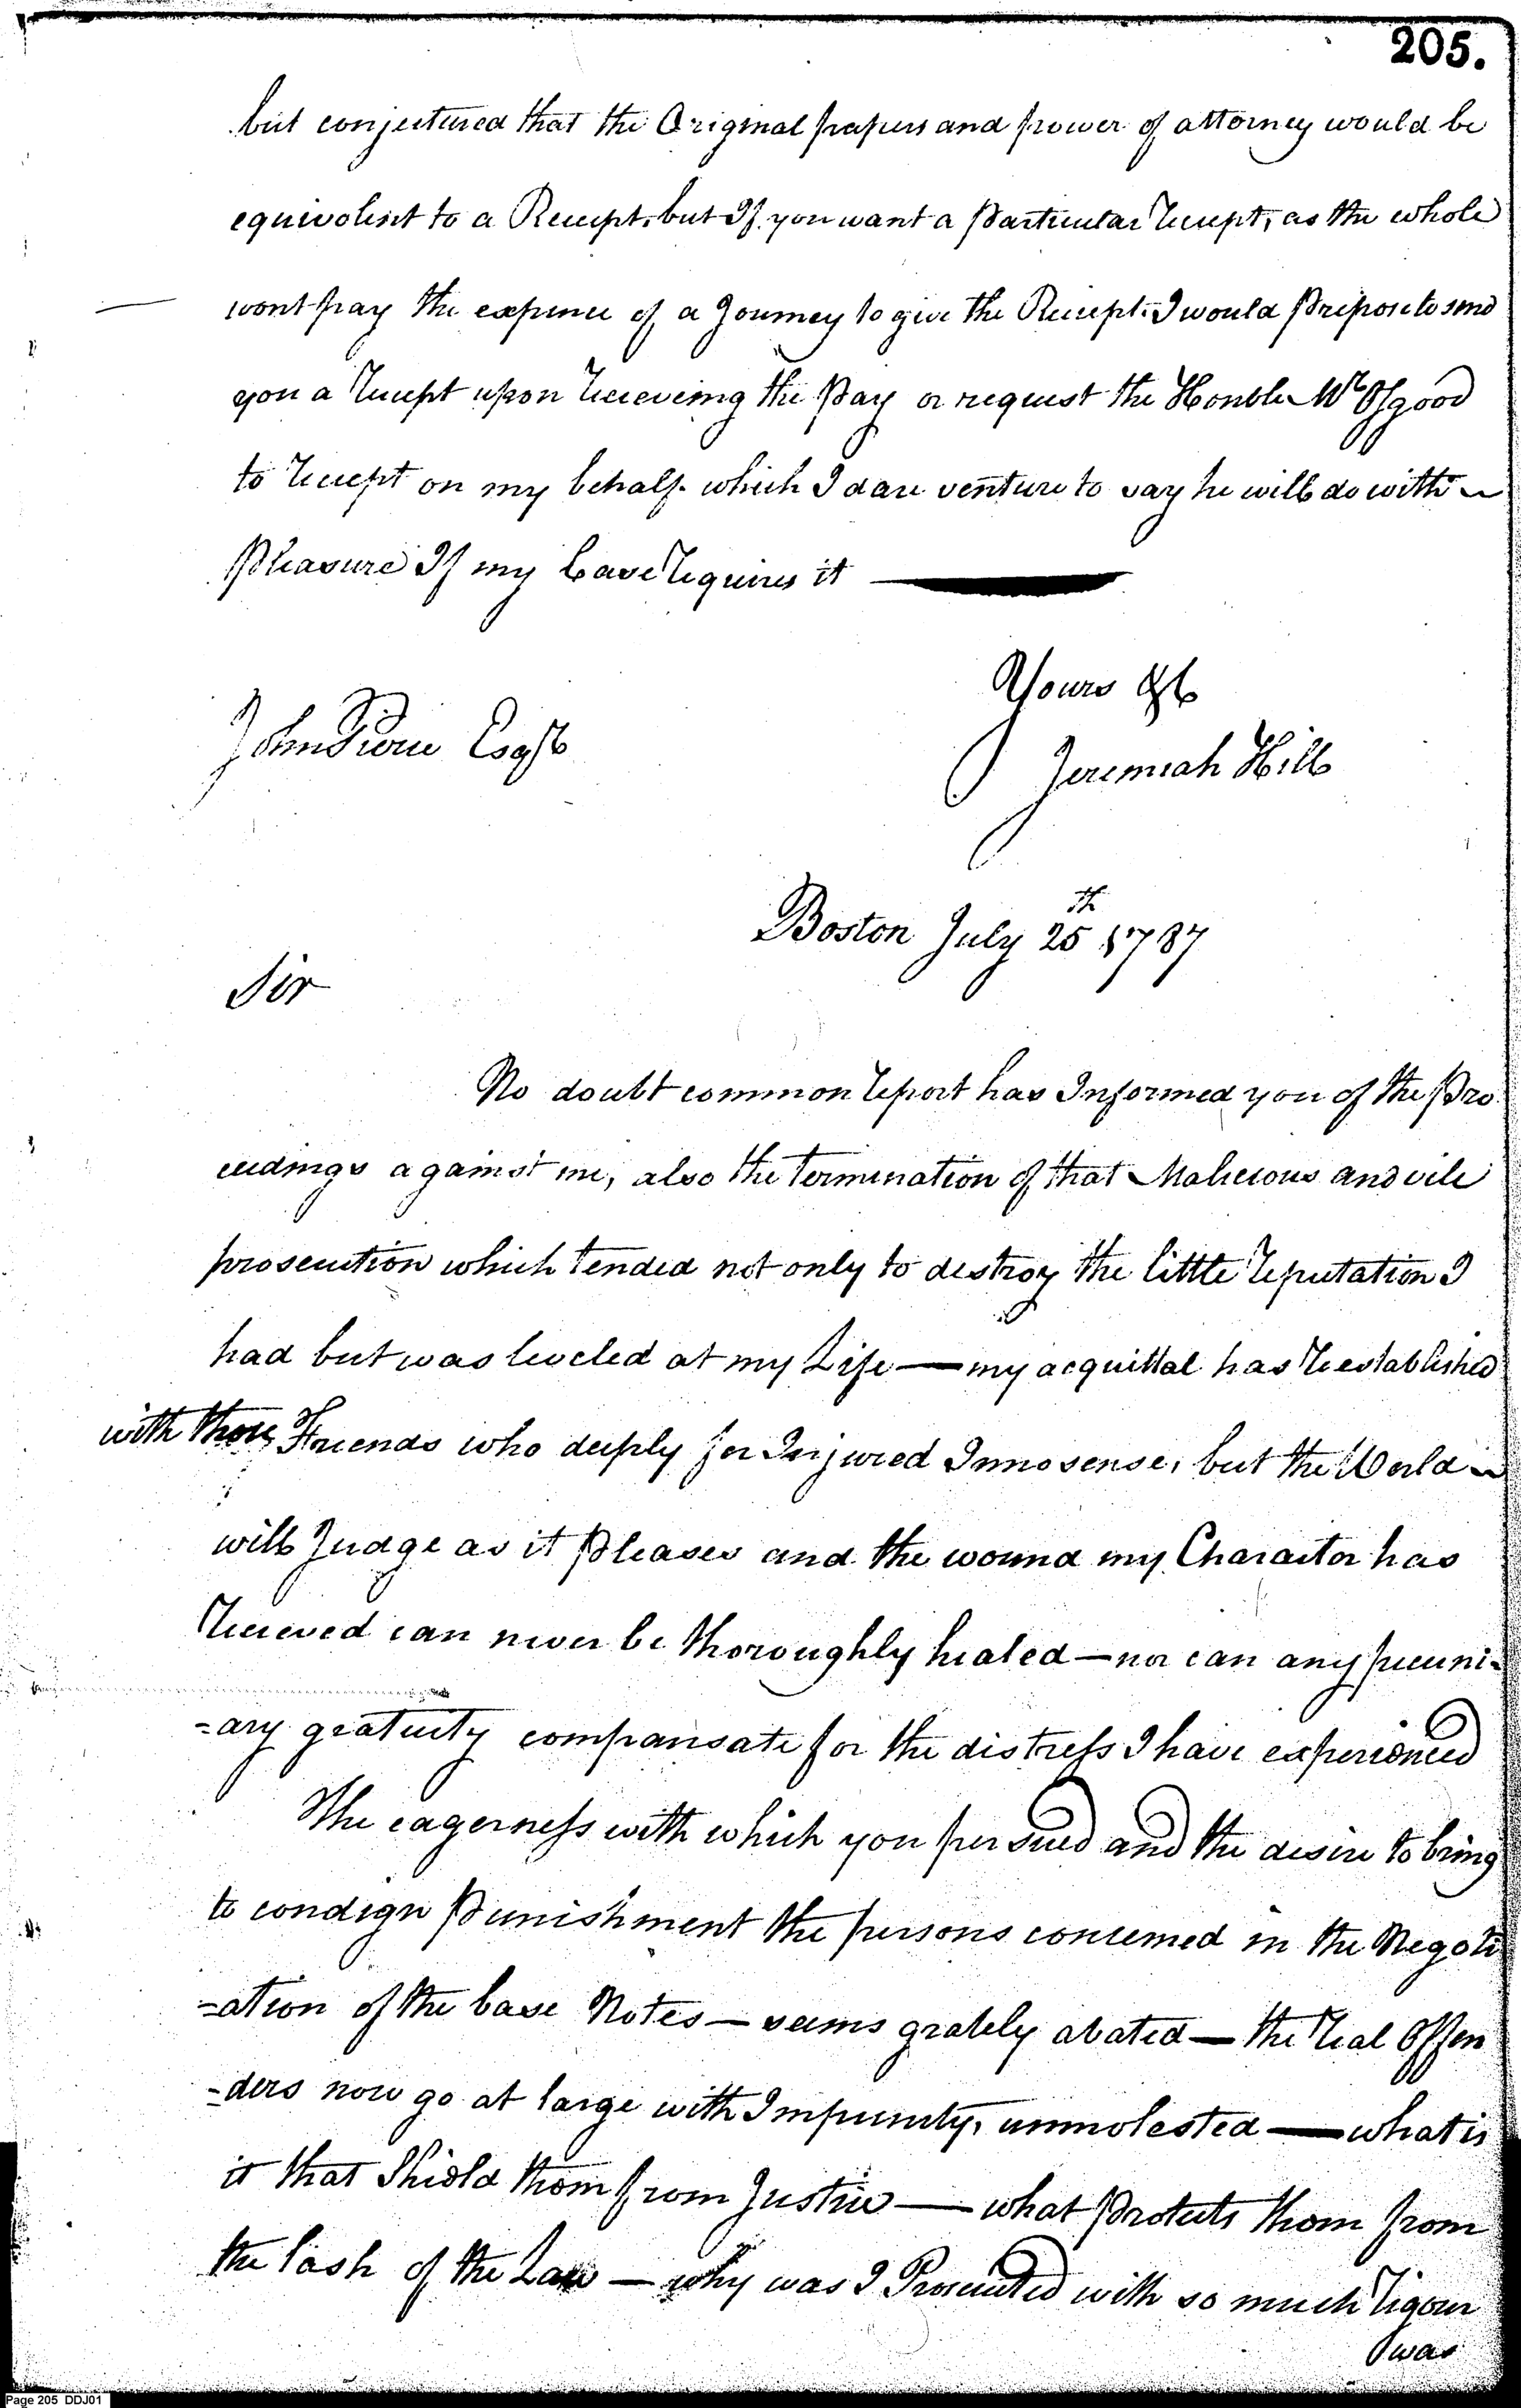 205.
but conjectured that the Original papers and power of attorney would be
equivolent to a Receipt, but If you want a Particular receipt, as the whole
wont pay the expence of a Journey to give the Receipt. I would Prepose to send
you a receipt upon receieveing the Pay or request the Honble Mr Osgood
to receipt on my behalf which I dare venture to say he will do with
Pleasure If my Case requires it
Yours &c
John Pierce Esqr
Jeremiah Hill
Boston July 25th 1787
Sir
No doubt common report has Informed you of the Pro
ceedings against me, also the termination of that Malicious and vile
prosecution which tended not only to destroy the little reputation I
had but was leveled at my Life — my acquittal has reestablished
with those Friends who deeply for Injured Innosense, but the World
will Judge as it Pleases and the wound my Charactor has
receieved can never be thoroughly healed — nor can any pecuni-
-ary gratuity compansate for the distress I have experienced
The eagerness with which you persued and the desire to bring
to condign Punishment the persons concerned in the Negoti
-ation of the base Notes — seems grately abated — the real Offen
-ders now go at large with Impunity, unmolested — what is
it that Shield them from Justice — what Protects them from
the lash of the Law — why was I Prosecuted with so much rigour
was
Page 205 DDJ01